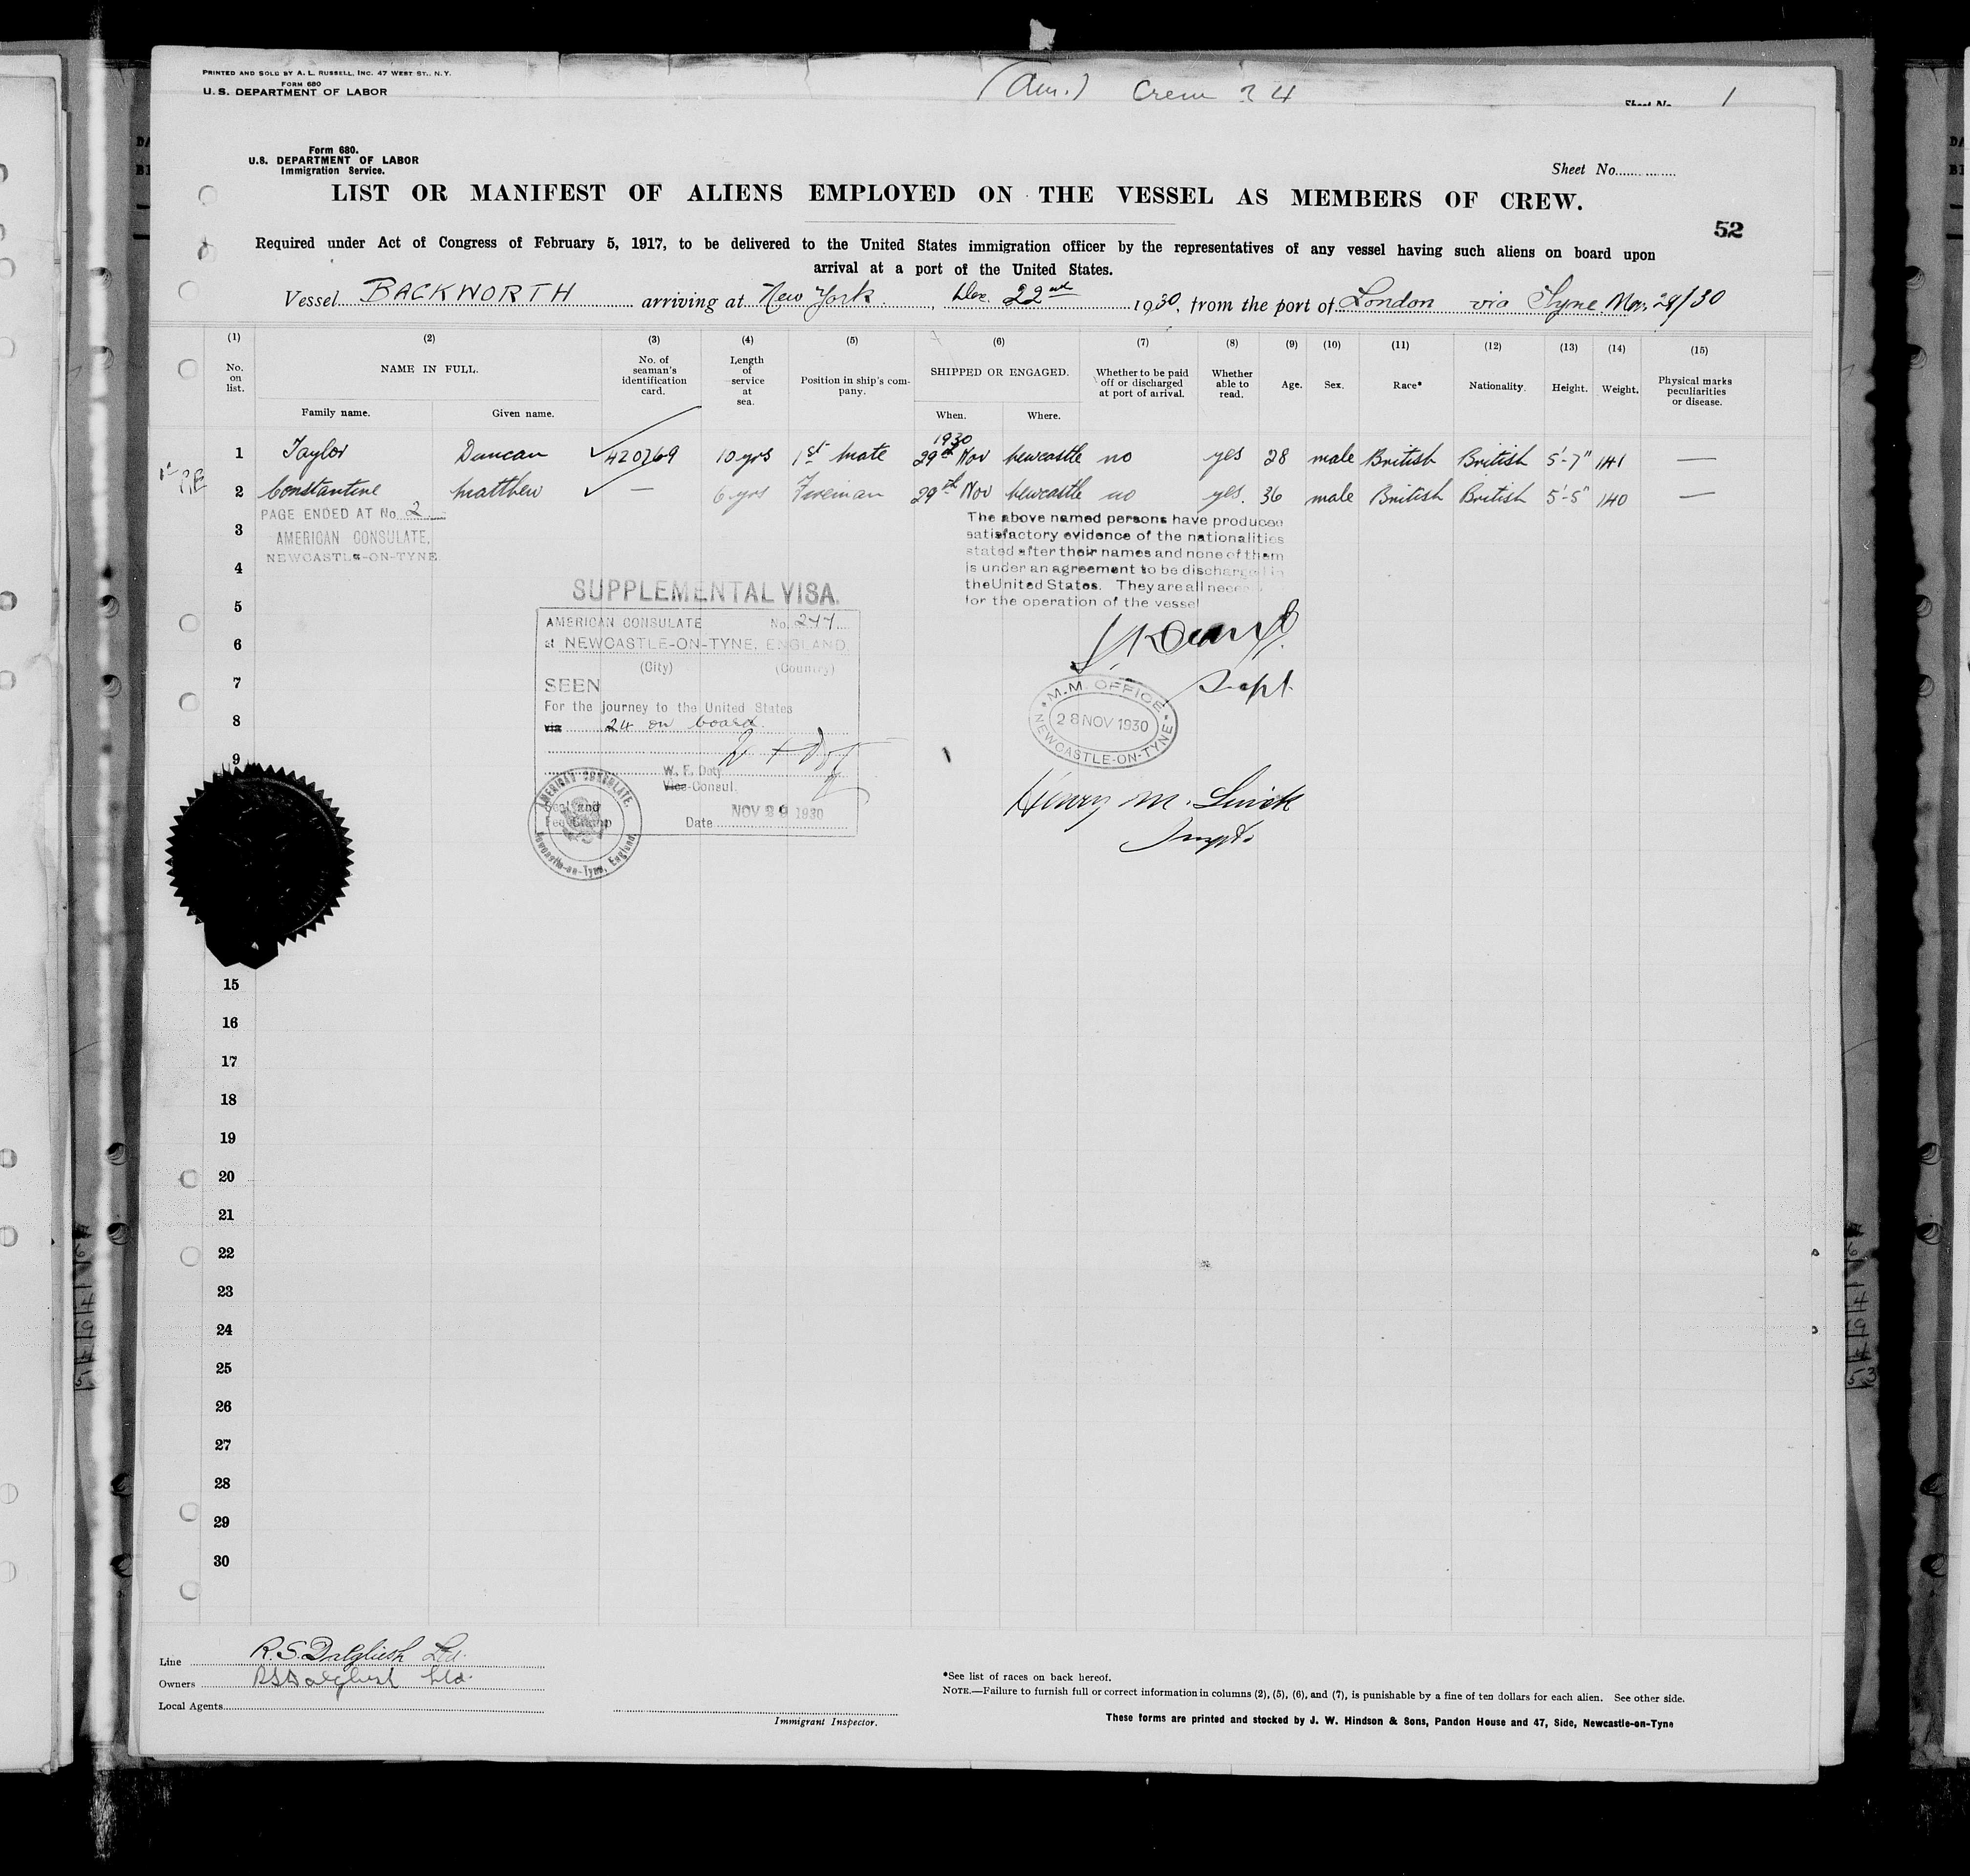 PRINTED AND SOLD BY A. L. RUSSELL, INC. 47 WEST ST., N.Y.
FORM 680
U. S. DEPARTMENT OF LABOR
Crew 24
Sheet No. 1
Form 680.
U.S. DEPARTMENT OF LABOR
Immigration Service.
Sheet No.
LIST OR MANIFEST OF ALIENS EMPLOYED ON THE VESSEL AS MEMBERS OF CREW.
52
Required under Act of Congress of February 5, 1917, to be delivered to the United States immigration officer by the representatives of any vessel having such aliens on board upon
arrival at a port of the United States.
Vessel BACKWORTH arriving at New York, Dec. 22nd 1930, from the port of London via Tyne. Nov. 29/30
(1) (2) (3) (4) (5) (6) (7) (8) (9) (10) (11) (12) (13) (14) (15)
No. on list. NAME IN FULL. No. of seaman's identification card. Length of service at sea. Position in ship's company. SHIPPED OR ENGAGED. Whether to be paid off or discharged at port of arrival. Whether able to read. Age. Sex. Race* Nationality. Height. Weight. Physical marks peculiarities or disease.
Family name. Given name. When. Where.
1930
1 Taylor Duncan ✓ 420269 10 yrs 1st Mate 29th Nov Newcastle no yes 28 male British British 5'-7" 141 —
2 Constantine Matthew ✓ — 6 yrs Fireman 29th Nov Newcastle no yes. 36 male British British 5'-5" 140 —
PAGE ENDED AT No. 2
AMERICAN CONSULATE,
NEWCASTLE-ON-TYNE.
The above named persons have produced
satisfactory evidence of the nationalities
stated after their names and none of them
is under an agreement to be discharged in
the United States. They are all
for the operation of the vessel
3
4
5
6
7
8
9
SUPPLEMENTAL VISA.
AMERICAN CONSULATE No. 244
at NEWCASTLE-ON-TYNE, ENGLAND.
(City) (Country)
SEEN
For the journey to the United States
via 24 on board.
W. F. Doty
Vice-Consul.
Seal and
Fee Stamp
Date NOV 29 1930
AMERICAN CONSULATE,
Newcastle-on-Tyne, England.
Supt.
M.M. OFFICE
28 NOV 1930
NEWCASTLE-ON-TYNE
Henry M.
15
16
17
18
19
20
21
22
23
24
25
26
27
28
29
30
Line R.S. Dalgliesh Ltd.
Owners R S Dalgliesh Ltd.
Local Agents
Immigrant Inspector.
*See list of races on back hereof.
NOTE.—Failure to furnish full or correct information in columns (2), (5), (6), and (7), is punishable by a fine of ten dollars for each alien. See other side.
These forms are printed and stocked by J. W. Hindson & Sons, Pandon House and 47, Side, Newcastle-on-Tyne